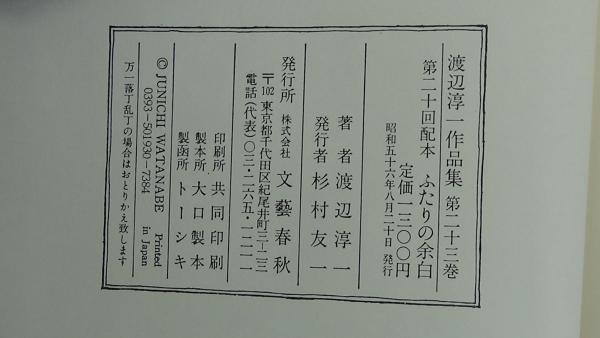 渡辺淳一作品集 第二十三巻
第二十回配本 ふたりの余白
定価一三〇〇円
昭和五十六年八月二十日 発行
著者 渡辺淳一
発行者 杉村友一
発行所 株式会社 文藝春秋
〒102 東京都千代田区紀尾井町三―二三
電話(代表)〇三・二六五・一二一一
印刷所 共同印刷
製本所 大口製本
製函所 トーシキ
© JUNICHI WATANABE Printed in Japan
0393-501930-7384
万一落丁乱丁の場合はおとりかえ致します